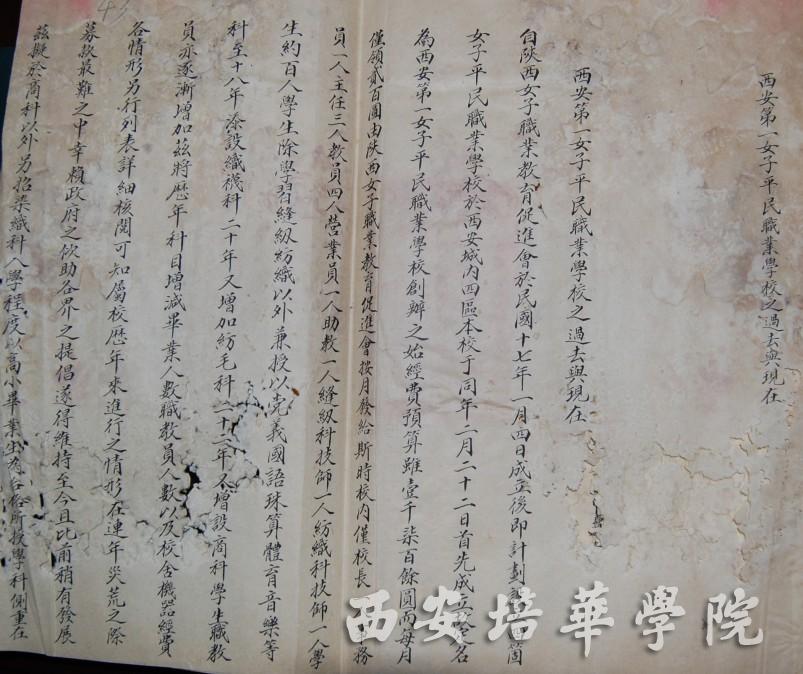 西安第一女子平民職業學校之過去與現在
西安第一女子平民職業學校之過去與現在
自陝西女子職業教育促進會於民國十七年一月四日成立後即計劃四箇
女子平民職業學校於西安城內四區本校于同年二月二十二日首先成立名
為西安第一女子平民職業學校創辦之始經費預算雖壹千柒百餘圓而每月
僅領貳百圓由陝西女子職業教育促進會按月發給斯時校內僅校長務
員一人主任三人教員四人營業員一人助教一人縫級科技師一人紡織科技師一人學
生約百人學生除學習縫級紡織以外兼授以党義國語珠算體育音樂等
科至十八年添設織襪科二十年又增加紡毛科二十二年增設商科學生職教
員亦逐漸增加茲將歷年科目增減畢業人數職教員人數以及校舍機器經費
各情形另行列表詳細核閱可知屬校歷年來進行之情形在連年災荒之際
募款最難之中幸賴政府之依助各界之提倡遂得維持至今且比前稍有發展
茲擬於商科以外另招染織科入學程度以高小畢業生為所授學科側重在
西安培華學院